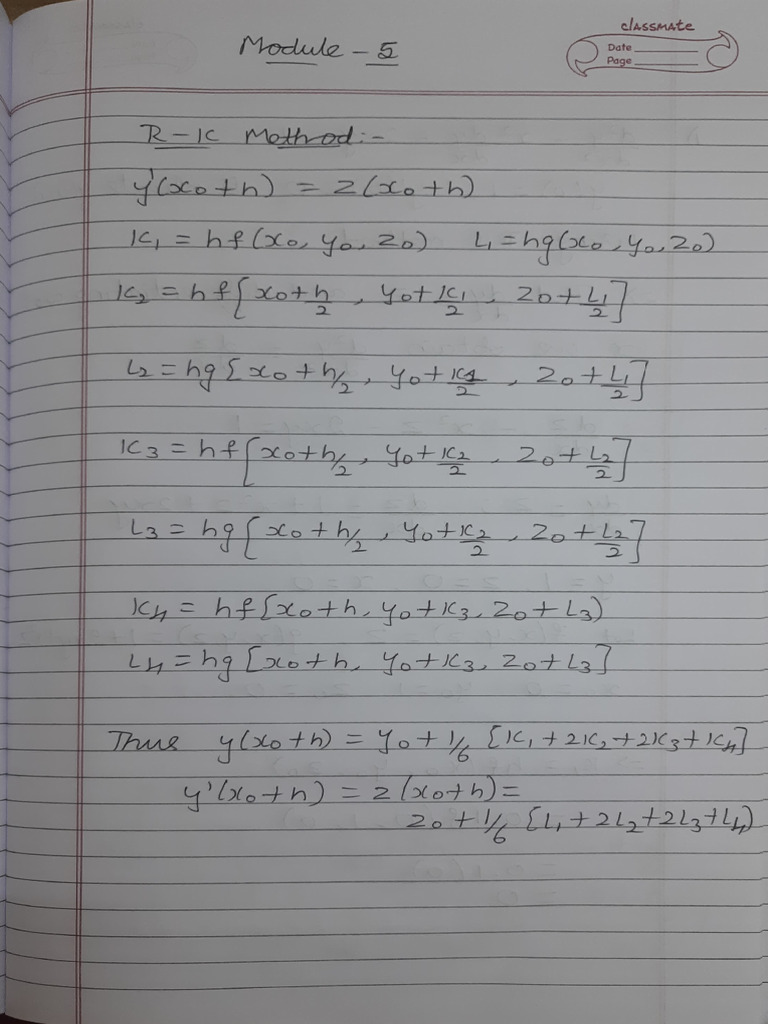 classmate
Date
Page
Module - 5
R-K Method:-
y'(x0+h) = z(x0+h)
K1 = hf(x0, y0, z0) L1 = hg(x0, y0, z0)
K2 = hf[x0+h/2, y0+K1/2, z0+L1/2]
L2 = hg[x0+h/2, y0+K1/2, z0+L1/2]
K3 = hf[x0+h/2, y0+K2/2, z0+L2/2]
L3 = hg[x0+h/2, y0+K2/2, z0+L2/2]
K4 = hf[x0+h, y0+K3, z0+L3)
L4 = hg[x0+h, y0+K3, z0+L3]
Thus y(x0+h) = y0+1/6 [K1+2K2+2K3+K4]
y'(x0+h) = z(x0+h) =
z0+1/6 [L1+2L2+2L3+L4)